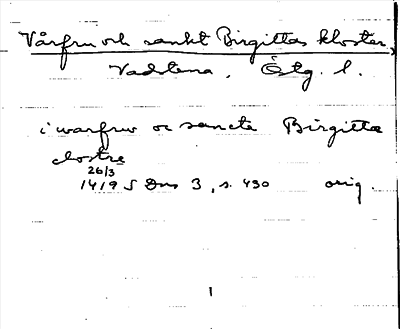 Vårfru och sankt Birgittas kloster,
Vadstena, Östg. l.
i warfrw oc sancta Birgitta
clostre
26/3
1419 SDns 3, s. 430 orig.
1